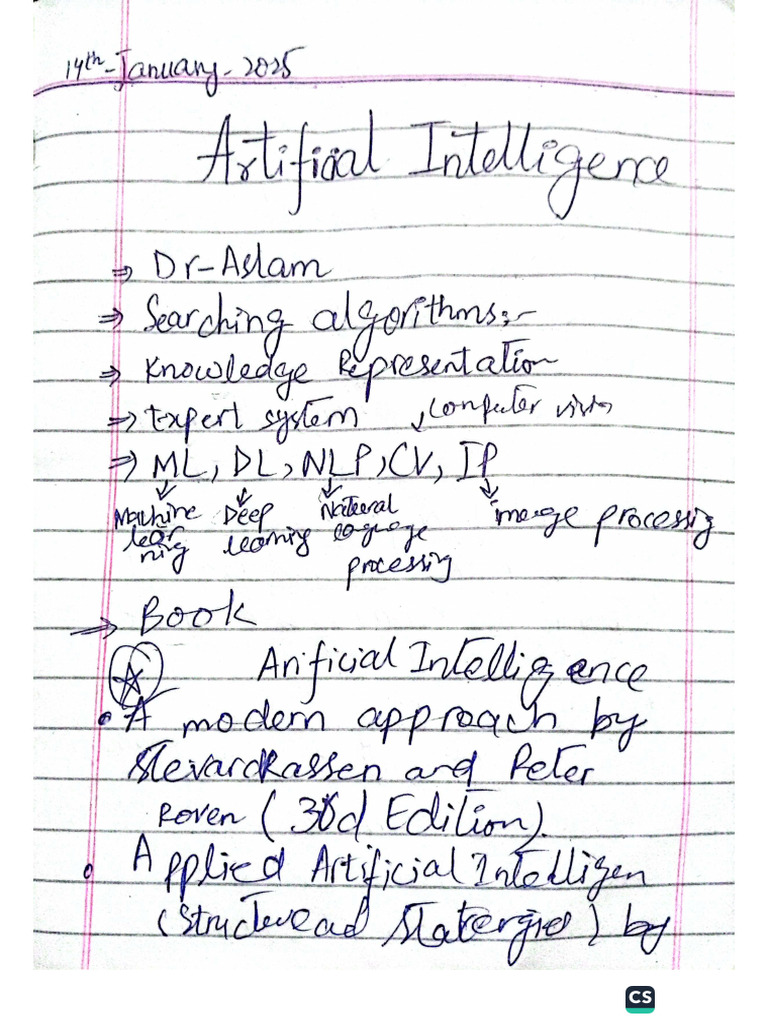 14th-January-2025
Artificial Intelligence
⇒ Dr-Aslam
⇒ Searching algorithms:-
⇒ Knowledge Representation
⇒ Expert system ↙ Computer vision
⇒ ML, DL, NLP, CV, IP
Machine Deep Natural image processing
lear learning language
ning processing
→ Book
Arificial Intelligence
• A modern approach by
Stevardkassen and Peter
Roven (3rd Edition).
• Applied Artificial Intelligen
(Structuead Statergies) by
CS